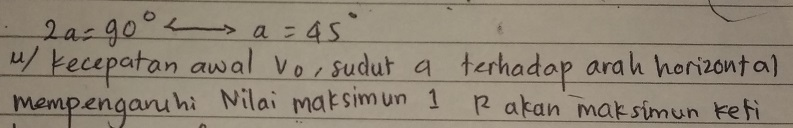 2a = 90° ⟷ a = 45°
u/ kecepatan awal Vo, sudut a terhadap arah horizontal
mempengaruhi Nilai maksimun 1 R akan maksimun keti